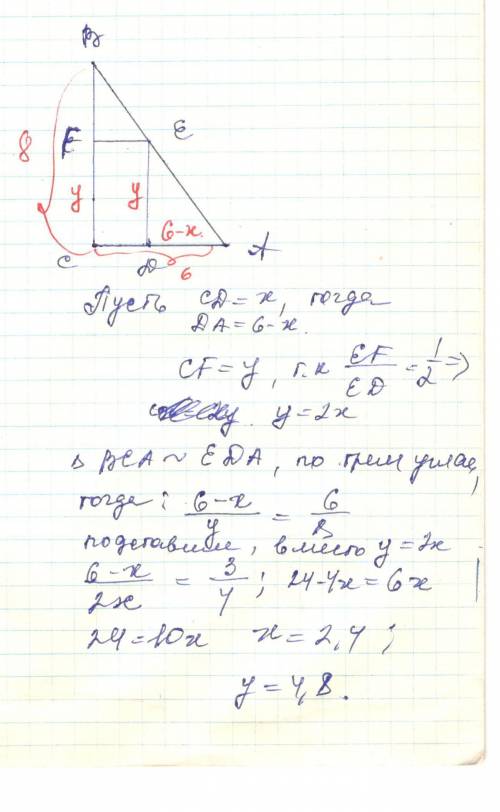 B
8
F
E
y
y
6-x.
C
D
A
6
Пусть CD = x, тогда
DA = 6-x.
CF = y, т.к EF/ED = 1/2 =>
y = 2x
Δ BCA ~ EDA, по трем углам,
тогда: 6-x/y = 6/8
подставим, вместо y = 2x
6-x/2x = 3/4; 24-4x = 6x
24 = 10x x = 2,4;
y = 4,8.